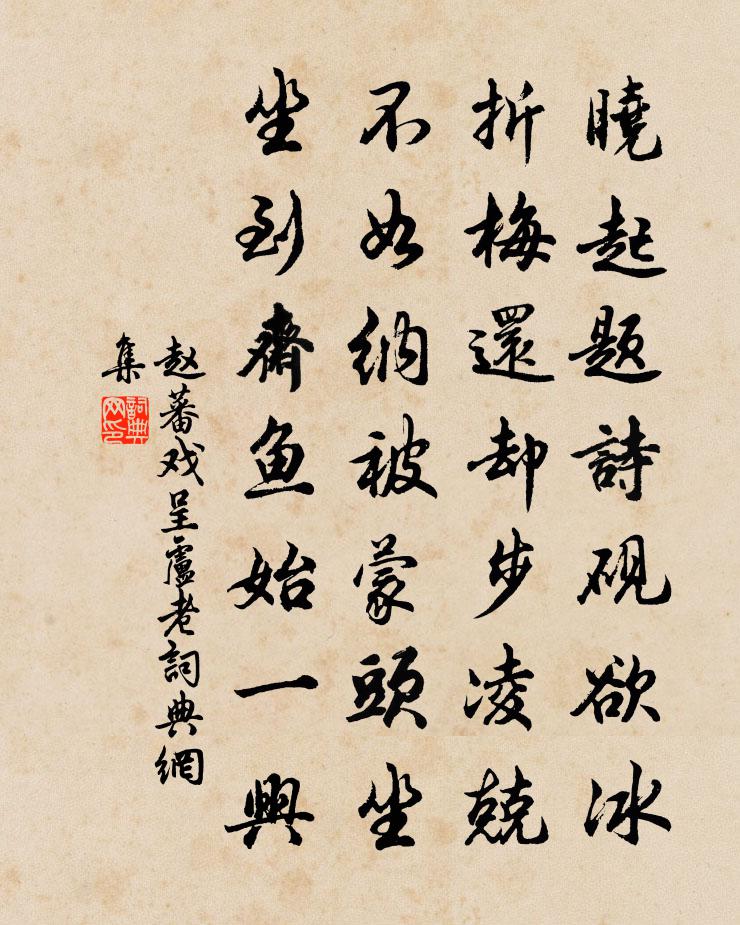 曉起題詩硯欲冰
折梅還却步凌兢
不如納被蒙頭坐
坐到齋魚始一興
赵蕃戏呈盧老詞典網
集
詞典
网印